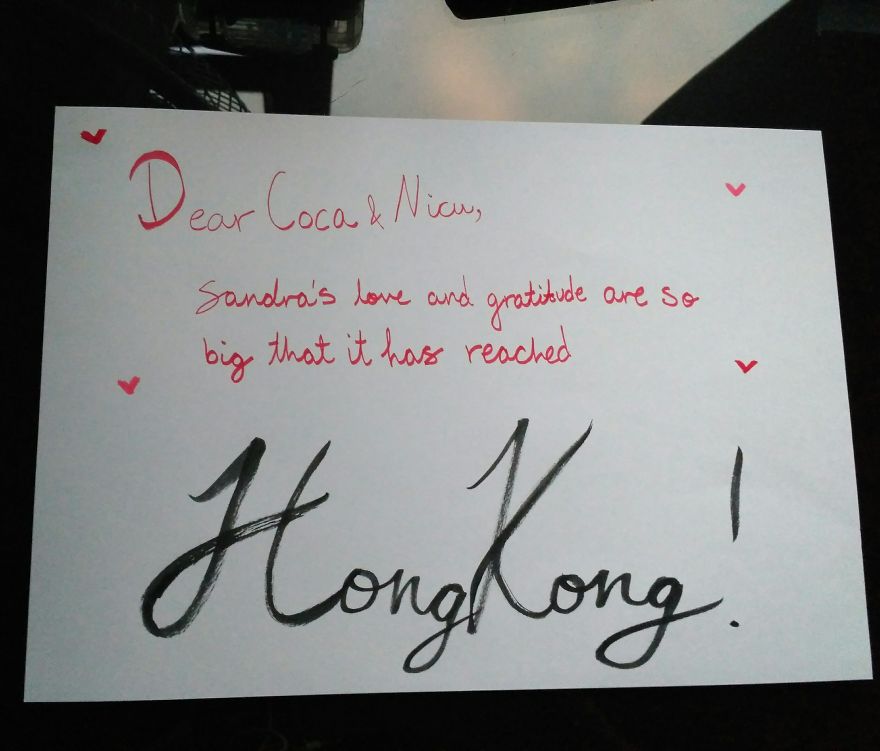 Dear Coca & Nicu,
Sandra's love and gratitude are so
big that it has reached
Hong Kong!